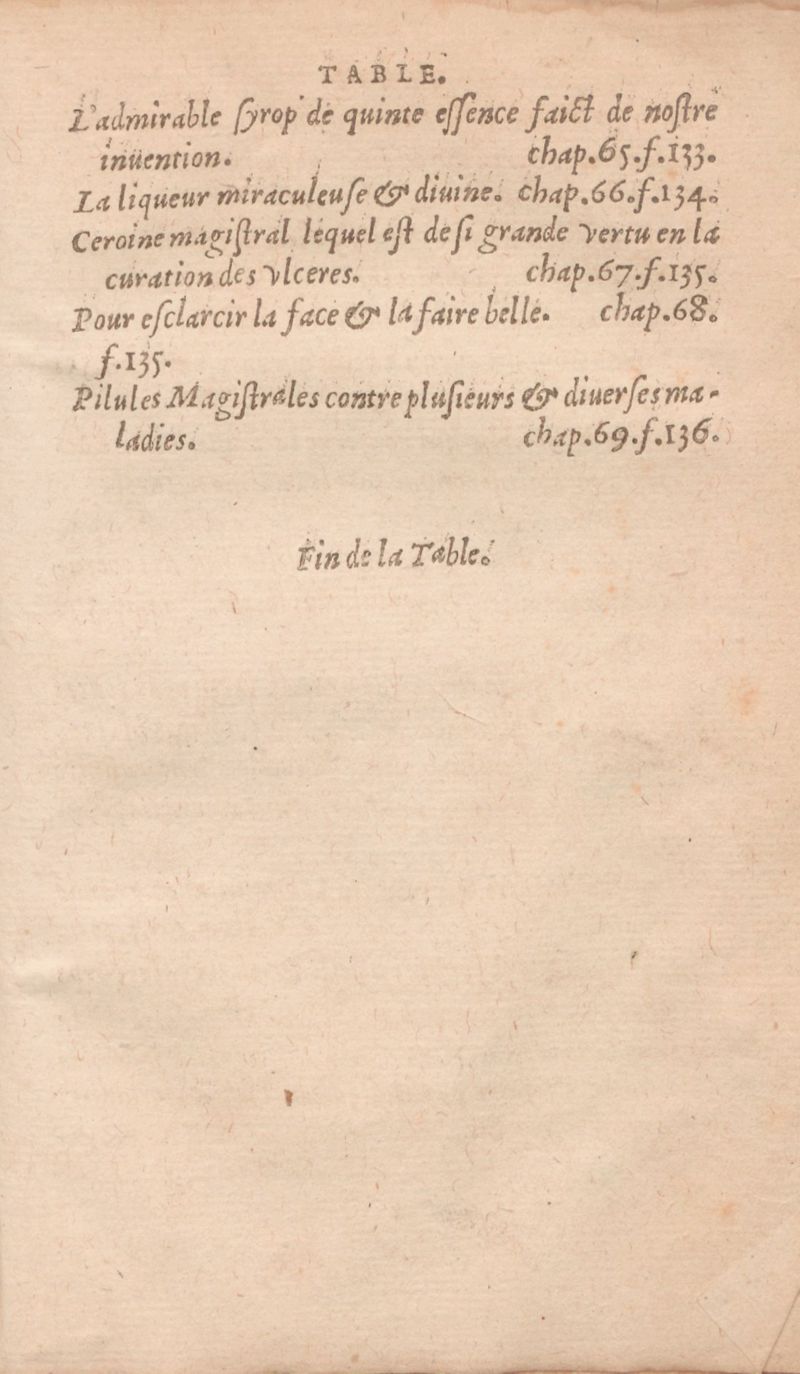 TABLE.
L'admirable ſyrop de quinte eſſence faict de noſtre
inuention. chap.65.f.133.
La liqueur miraculeuſe & diuine. chap.66.f.134.
Ceroine magiſtral lequel eſt de ſi grande vertu en la
curation des vlceres. chap.67.f.135.
Pour eſclarcir la face & la faire belle. chap.68.
f.135.
Pilules Magiſtrales contre pluſieurs & diuerſes ma-
ladies. chap.69.f.136.
Fin de la Table.